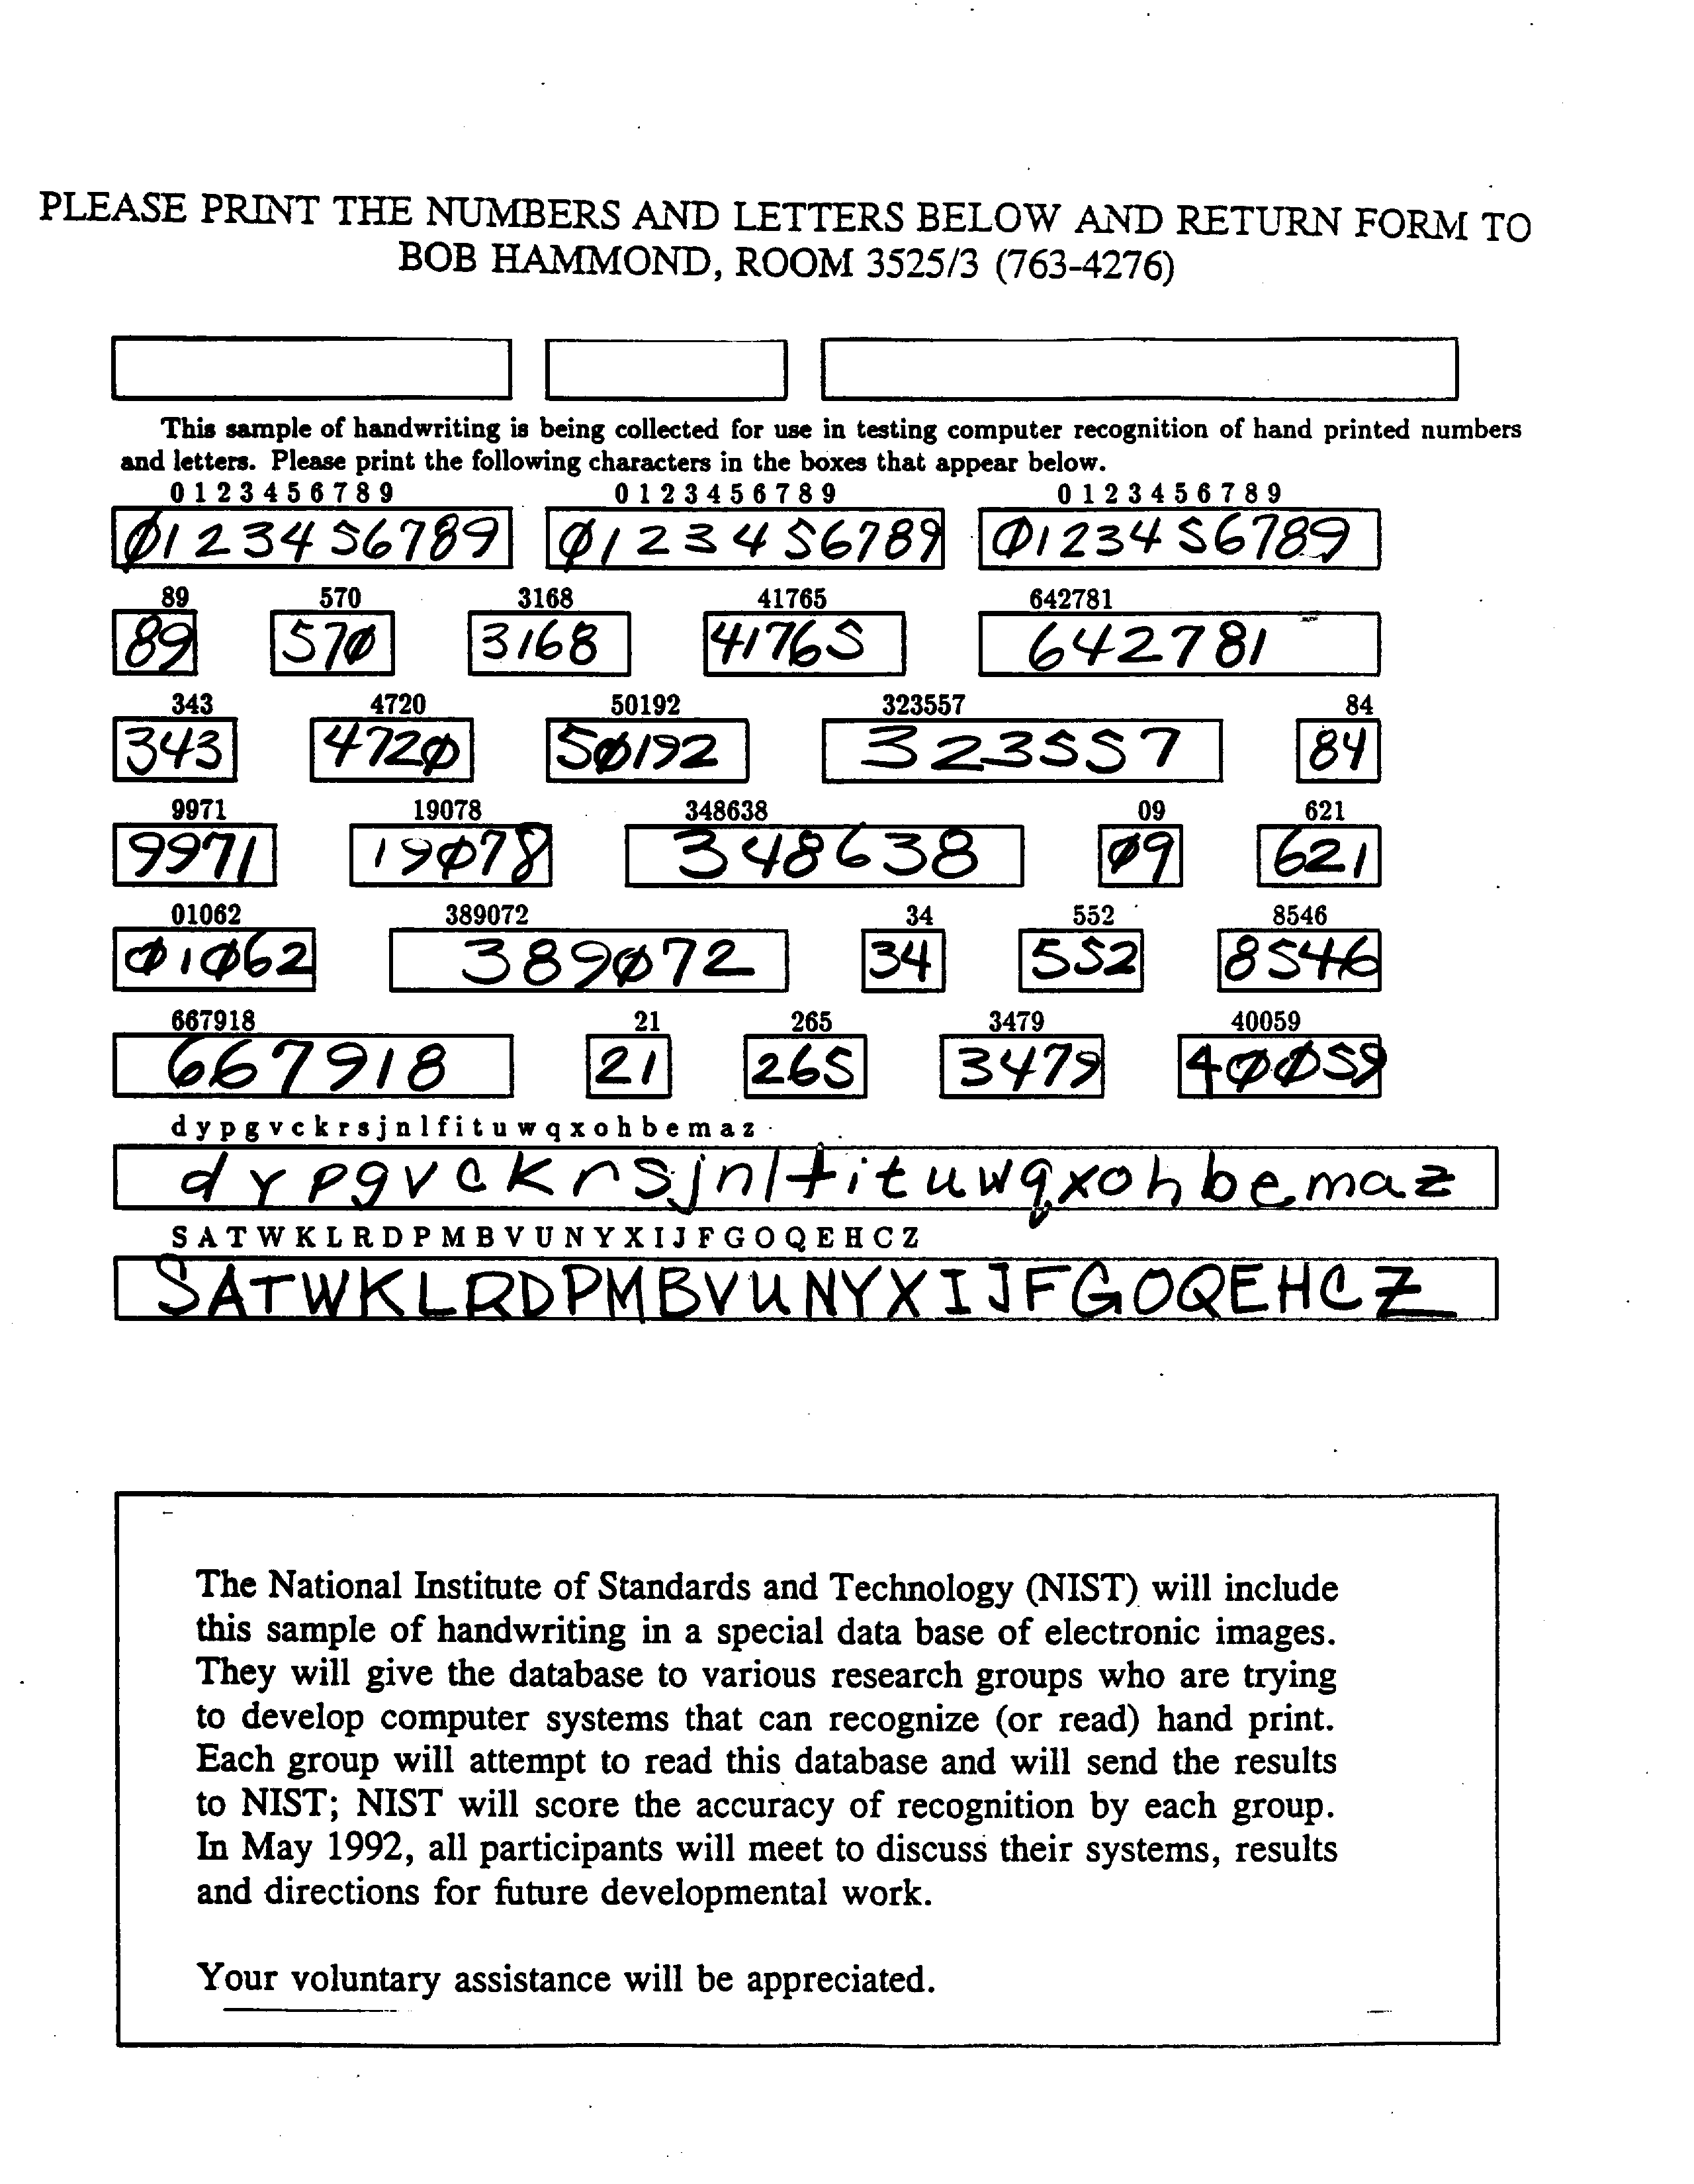 PLEASE PRINT THE NUMBERS AND LETTERS BELOW AND RETURN FORM TO
BOB HAMMOND, ROOM 3525/3 (763-4276)
This sample of handwriting is being collected for use in testing computer recognition of hand printed numbers
and letters. Please print the following characters in the boxes that appear below.
0 1 2 3 4 5 6 7 8 9 0 1 2 3 4 5 6 7 8 9 0 1 2 3 4 5 6 7 8 9
0123456789 0123456789 0123456789
89 570 3168 41765 642781
89 570 3168 41765 642781
343 4720 50192 323557 84
343 4720 50192 323557 84
9971 19078 348638 09 621
9971 19078 348638 09 621
01062 389072 34 552 8546
01062 389072 34 552 8546
667918 21 265 3479 40059
667918 21 265 3479 40059
d y p g v c k r s j n l f i t u w q x o h b e m a z
d y p g v c k r s j n l f i t u w q x o h b e m a z
S A T W K L R D P M B V U N Y X I J F G O Q E H C Z
SATWKLRDPMBVUNYXIJFGOQEHCZ
The National Institute of Standards and Technology (NIST) will include
this sample of handwriting in a special data base of electronic images.
They will give the database to various research groups who are trying
to develop computer systems that can recognize (or read) hand print.
Each group will attempt to read this database and will send the results
to NIST; NIST will score the accuracy of recognition by each group.
In May 1992, all participants will meet to discuss their systems, results
and directions for future developmental work.
Your voluntary assistance will be appreciated.